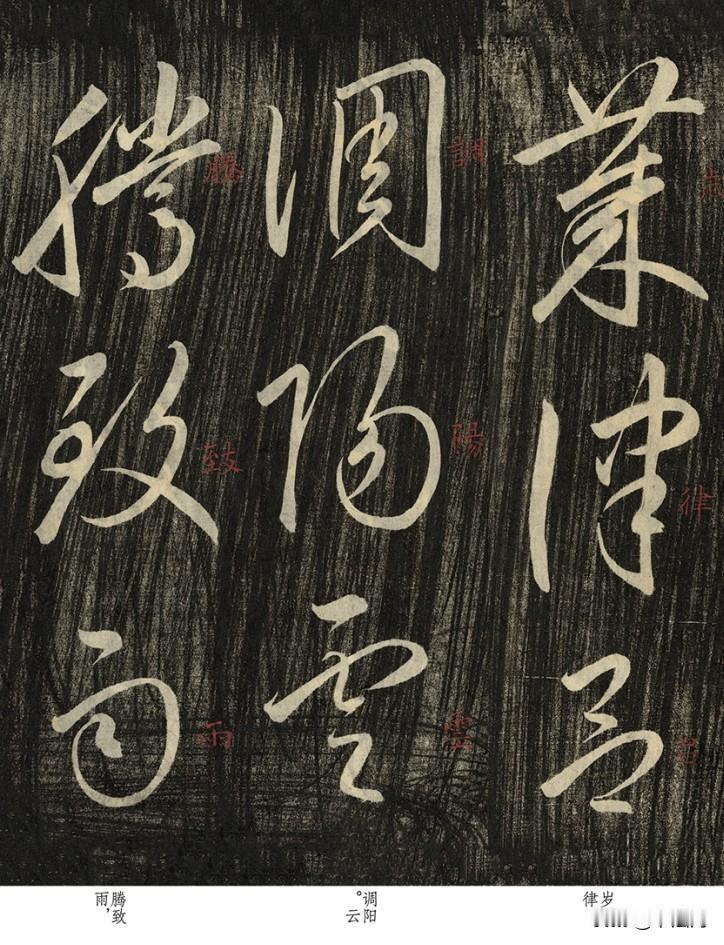 歲律吕
律吕
調陽雲
調陽雲
騰致雨
騰致雨
岁
律
调阳
。云
腾致
雨，